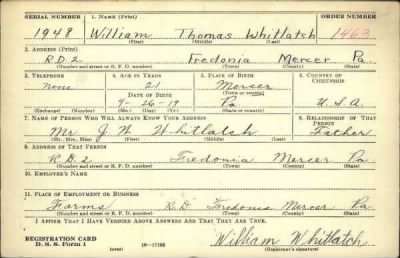 SERIAL NUMBER 1. NAME (Print) ORDER NUMBER
1948 William Thomas Whitlatch 1463
(First) (Middle) (Last)
2. ADDRESS (Print)
R.D.2 Fredonia Mercer Pa.
(Number and street or R. F. D. number) (Town) (County) (State)
3. TELEPHONE 4. AGE IN YEARS 5. PLACE OF BIRTH 6. COUNTRY OF CITIZENSHIP
none 21 Mercer
DATE OF BIRTH (Town or county)
9-26-19 Pa U.S.A
(Exchange) (Number) (Mo.) (Day) (Yr.) (State or country)
7. NAME OF PERSON WHO WILL ALWAYS KNOW YOUR ADDRESS 8. RELATIONSHIP OF THAT PERSON
Mr J W Whitlatch Father
(Mr., Mrs., Miss) (First) (Middle) (Last)
9. ADDRESS OF THAT PERSON
R.D.2 Fredonia Mercer Pa
(Number and street or R. F. D. number) (Town) (County) (State)
10. EMPLOYER'S NAME
11. PLACE OF EMPLOYMENT OR BUSINESS
Farms R D Fredonia Mercer Pa
(Number and street or R. F. D. number) (Town) (County) (State)
I AFFIRM THAT I HAVE VERIFIED ABOVE ANSWERS AND THAT THEY ARE TRUE.
REGISTRATION CARD
D. S. S. Form 1 (over) 16-17105 William Whitlatch
(Registrant's signature)